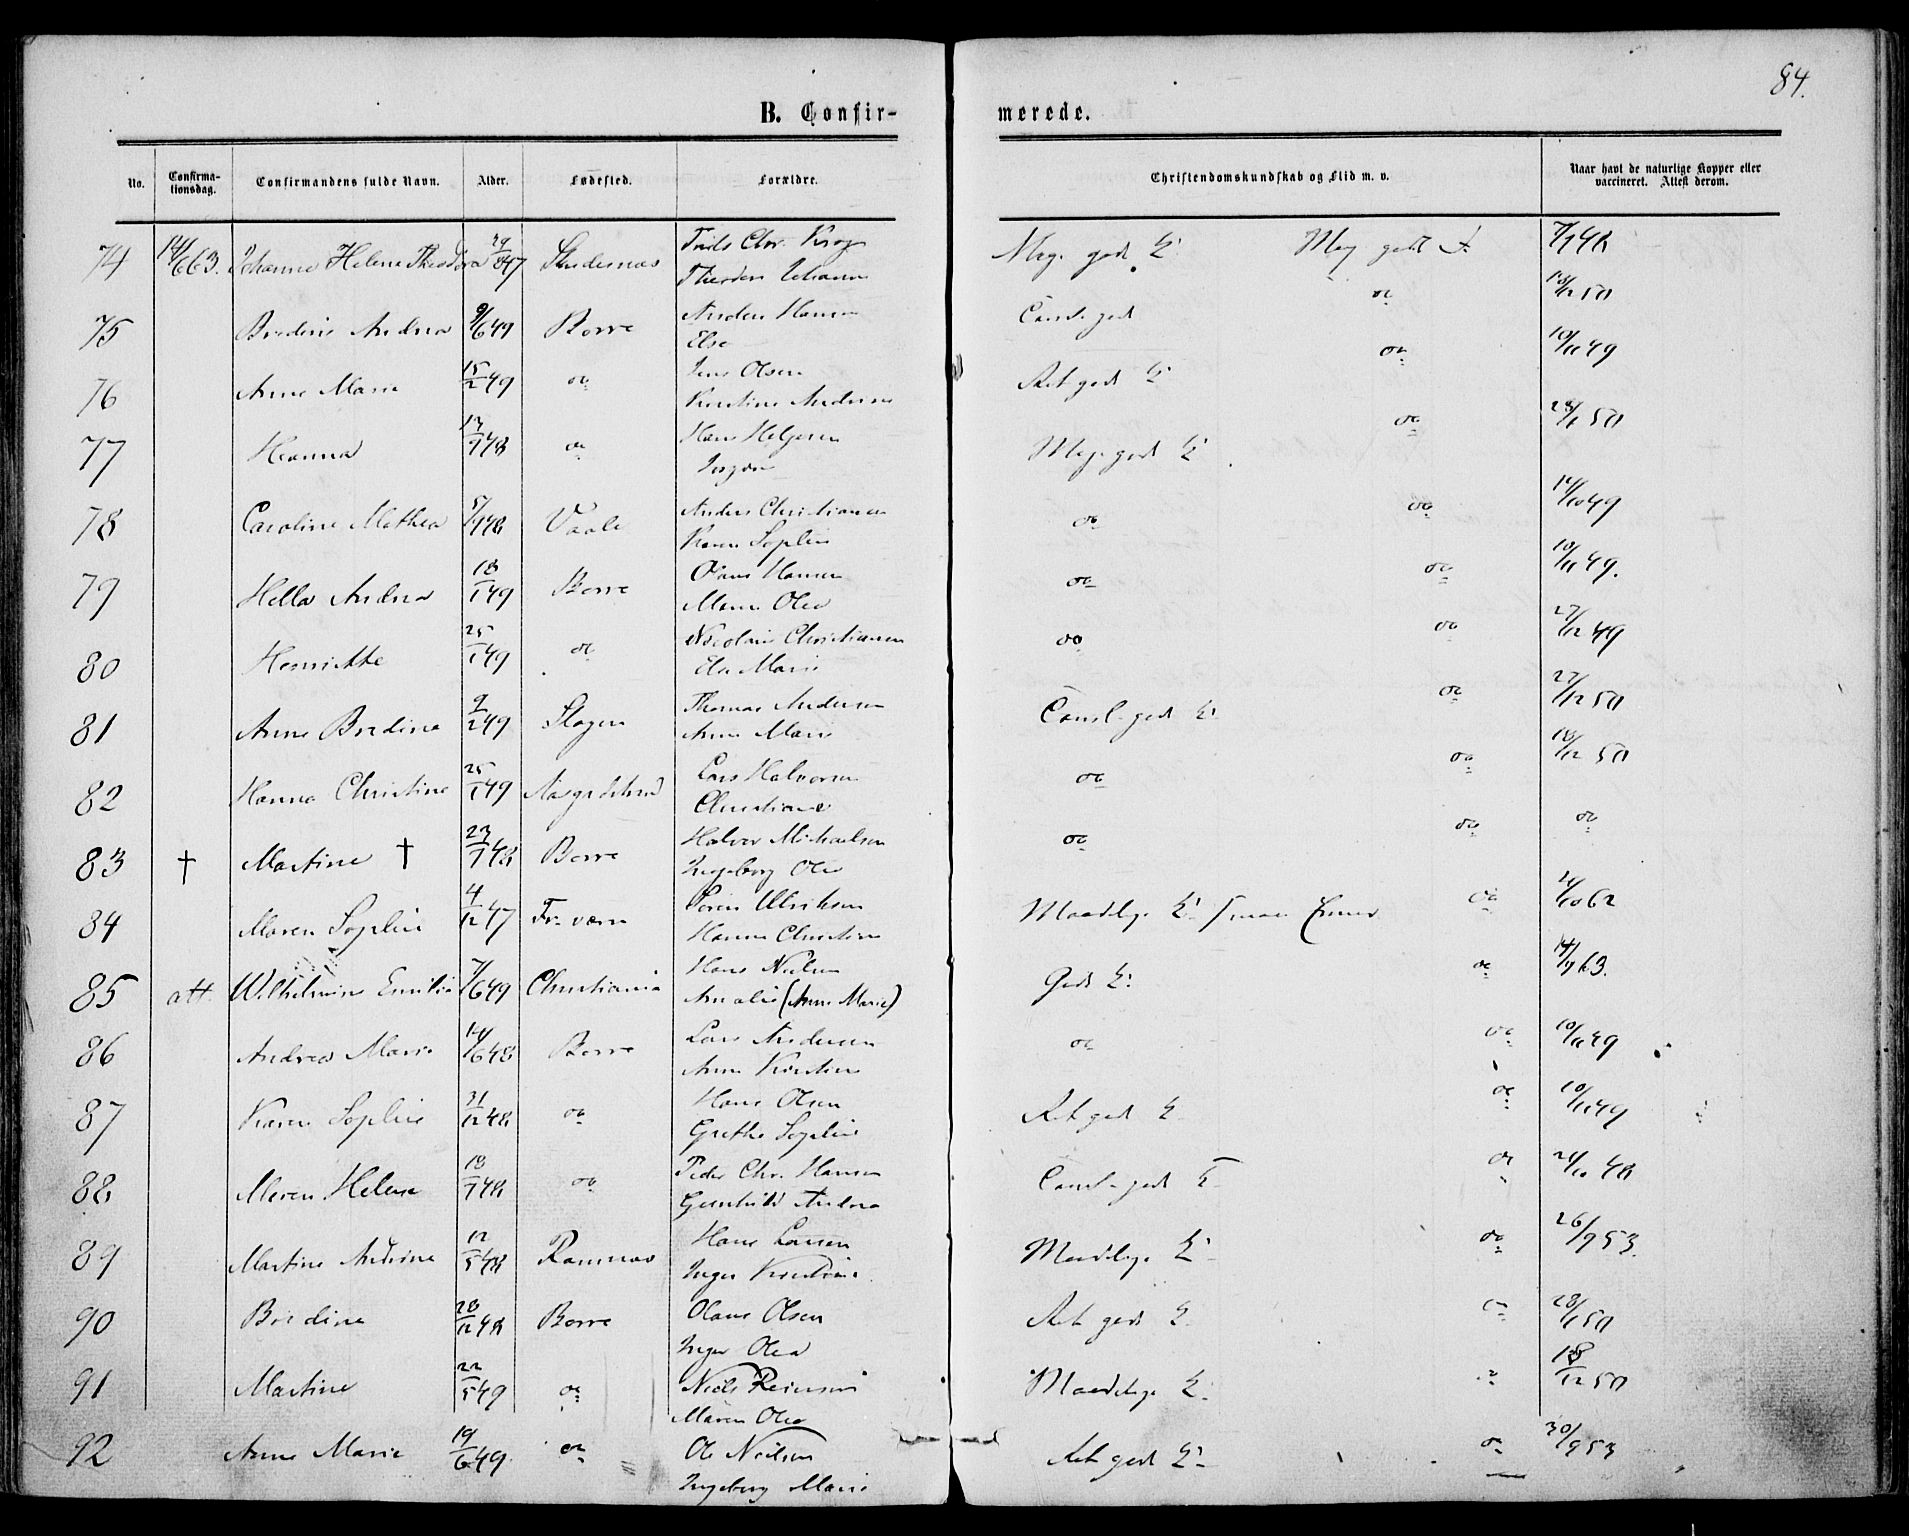 84.
B. Confir- merede.
No. Confirma-tionsdag. Confirmandens fulde Navn. Alder. Fødested. Forældre. Christendomskundskab og Flid m. v. Naar havt de naturlige Kopper eller vaccineret. Attest derom.
74 14/6 63. Johanne Helene Theodora 29/ 47 Meg. godt K. Meg godt F. 7/7 48
Johanne
75 Andrea 9/6 49 Borre Anders Hansen Cand. godt do 18/12 50
Else
76 Anne Marie 15/2 49 do Jens Olsen Ret godt K. do 10/11 49
Kirstine Andersen
77 Hanna 13/9 48 do Hans Helgesen Meg. godt K. do 28/1 50
78 Caroline Mathea 5/9 48 Vaale Anders Christiansen do do 14/10 49
Karen Sophie
79 Hella Andrea 18/1 49 Borre Hansen do do 10/11 49.
Maren Olea
80 Henriette 25/1 49 do Nicolai Christiansen do do 27/12 49
Else Marie
81 Anne Bredine 9/2 49 Slagen Thomas Andersen godt K. do 27/12 50
Anne Marie
82 Hanna Christine 25/1 49 Aasgaardstrand Lars Halvorsen do do 18/12 50
Christiane
83 † Martine † 23/7 48 Borre Halvor Michaelsen do do do
Ingeborg Olea
84 Maren Sophie 4/12 47 Fr.værn Søren Ulriksen Maadelige K. do 21/10 62
Hanne Christine
85 att. Wilhelmine Emilie 7/6 49 Christiania Hans Nielsen Godt K. do 14/9 63.
Amalie (Anne Marie)
86 Andrea Marie 14/6 48 Borre Lars Andersen do do 10/11 49
Anne Kirstine
87 Karen Sophie 31/12 48 do Hans Olsen Ret godt K. do 10/11 49
Grethe Sophie
88 Maren Helene 18/7 48 do Peder Chr. Hansen godt K. do 21/10 48
Gunhild Andrea
89 Martine Andrine 12/5 48 Ramnæs Hans Larsen Maadelige K. do 26/9 53.
Inger Kirstine
90 Bredine 28/12 48 Borre Olaus Olsen Ret godt K. do 28/1 50
Inger Olea
91 Martine 22/5 49 do Niels Maadelige K. do 18/12 50
Maren Olea
92 Anne Marie 19/6 49 do Ole Nielsen Ret godt K. do 30/9 53
Ingeborg Marie